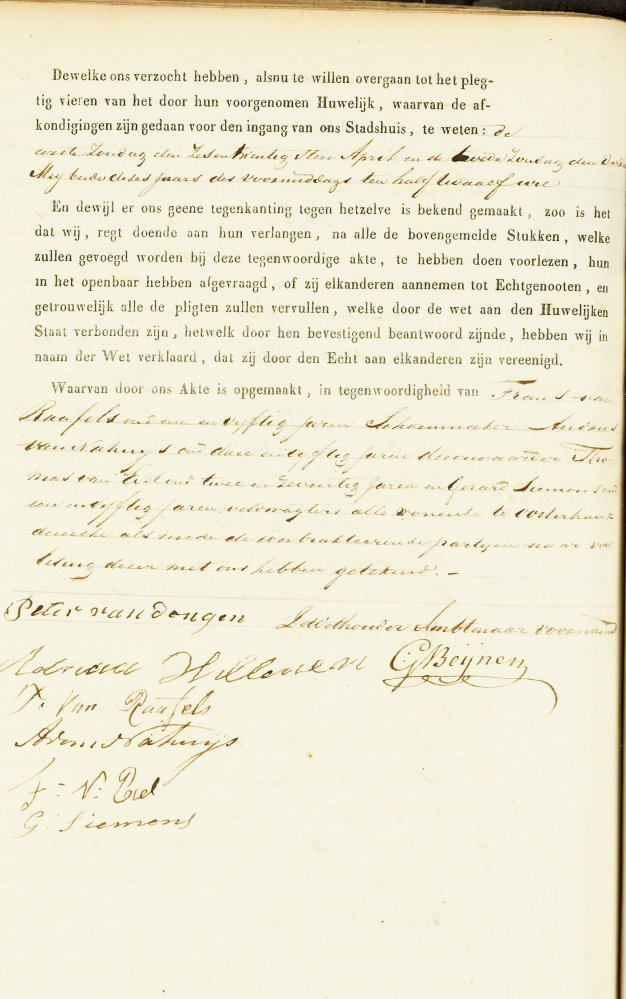 Dewelke ons verzocht hebben, alsnu te willen overgaan tot het pleg-
tig vieren van het door hun voorgenomen Huwelijk, waarvan de af-
kondigingen zijn gedaan voor den ingang van ons Stadshuis, te weten: de
eerste Zondag den Zesentwintig sten April en de tweede Zondag den derden
Mey beide dezes Jaars des voormiddags ten half twaalf ure
En dewijl er ons geene tegenkanting tegen hetzelve is bekend gemaakt, zoo is het
dat wij, regt doende aan hun verlangen, na alle de bovengemelde Stukken, welke
zullen gevoegd worden bij deze tegenwoordige akte, te hebben doen voorlezen, hun
in het openbaar hebben afgevraagd, of zij elkanderen aannemen tot Echtgenooten, en
getrouwelijk alle de pligten zullen vervullen, welke door de wet aan den Huwelijken
Staat verbonden zijn, hetwelk door hen bevestigend beantwoord zijnde, hebben wij in
naam der Wet verklaard, dat zij door den Echt aan elkanderen zijn vereenigd.
Waarvan door ons Akte is opgemaakt, in tegenwoordigheid van Frans van
Raafels oud een en vyftig jaren Schoenmaker
van Nahuys oud en vyftig jaren deurwaarder Tho
mas van oud twee en Zeventig Jaren en Gerard Siemons oud
en vyftig jaren veldwagters alle wonende te Oosterhout
dewelke als mede de contrakteerende partyen naar voor
lesing deser met ons hebben getekend. -
Peter van dongen De Wethouder Ambtenaar voornoemd
Adriana Willemen CGBeynen
F. Van Raafels
Nahuijs
G. Siemons